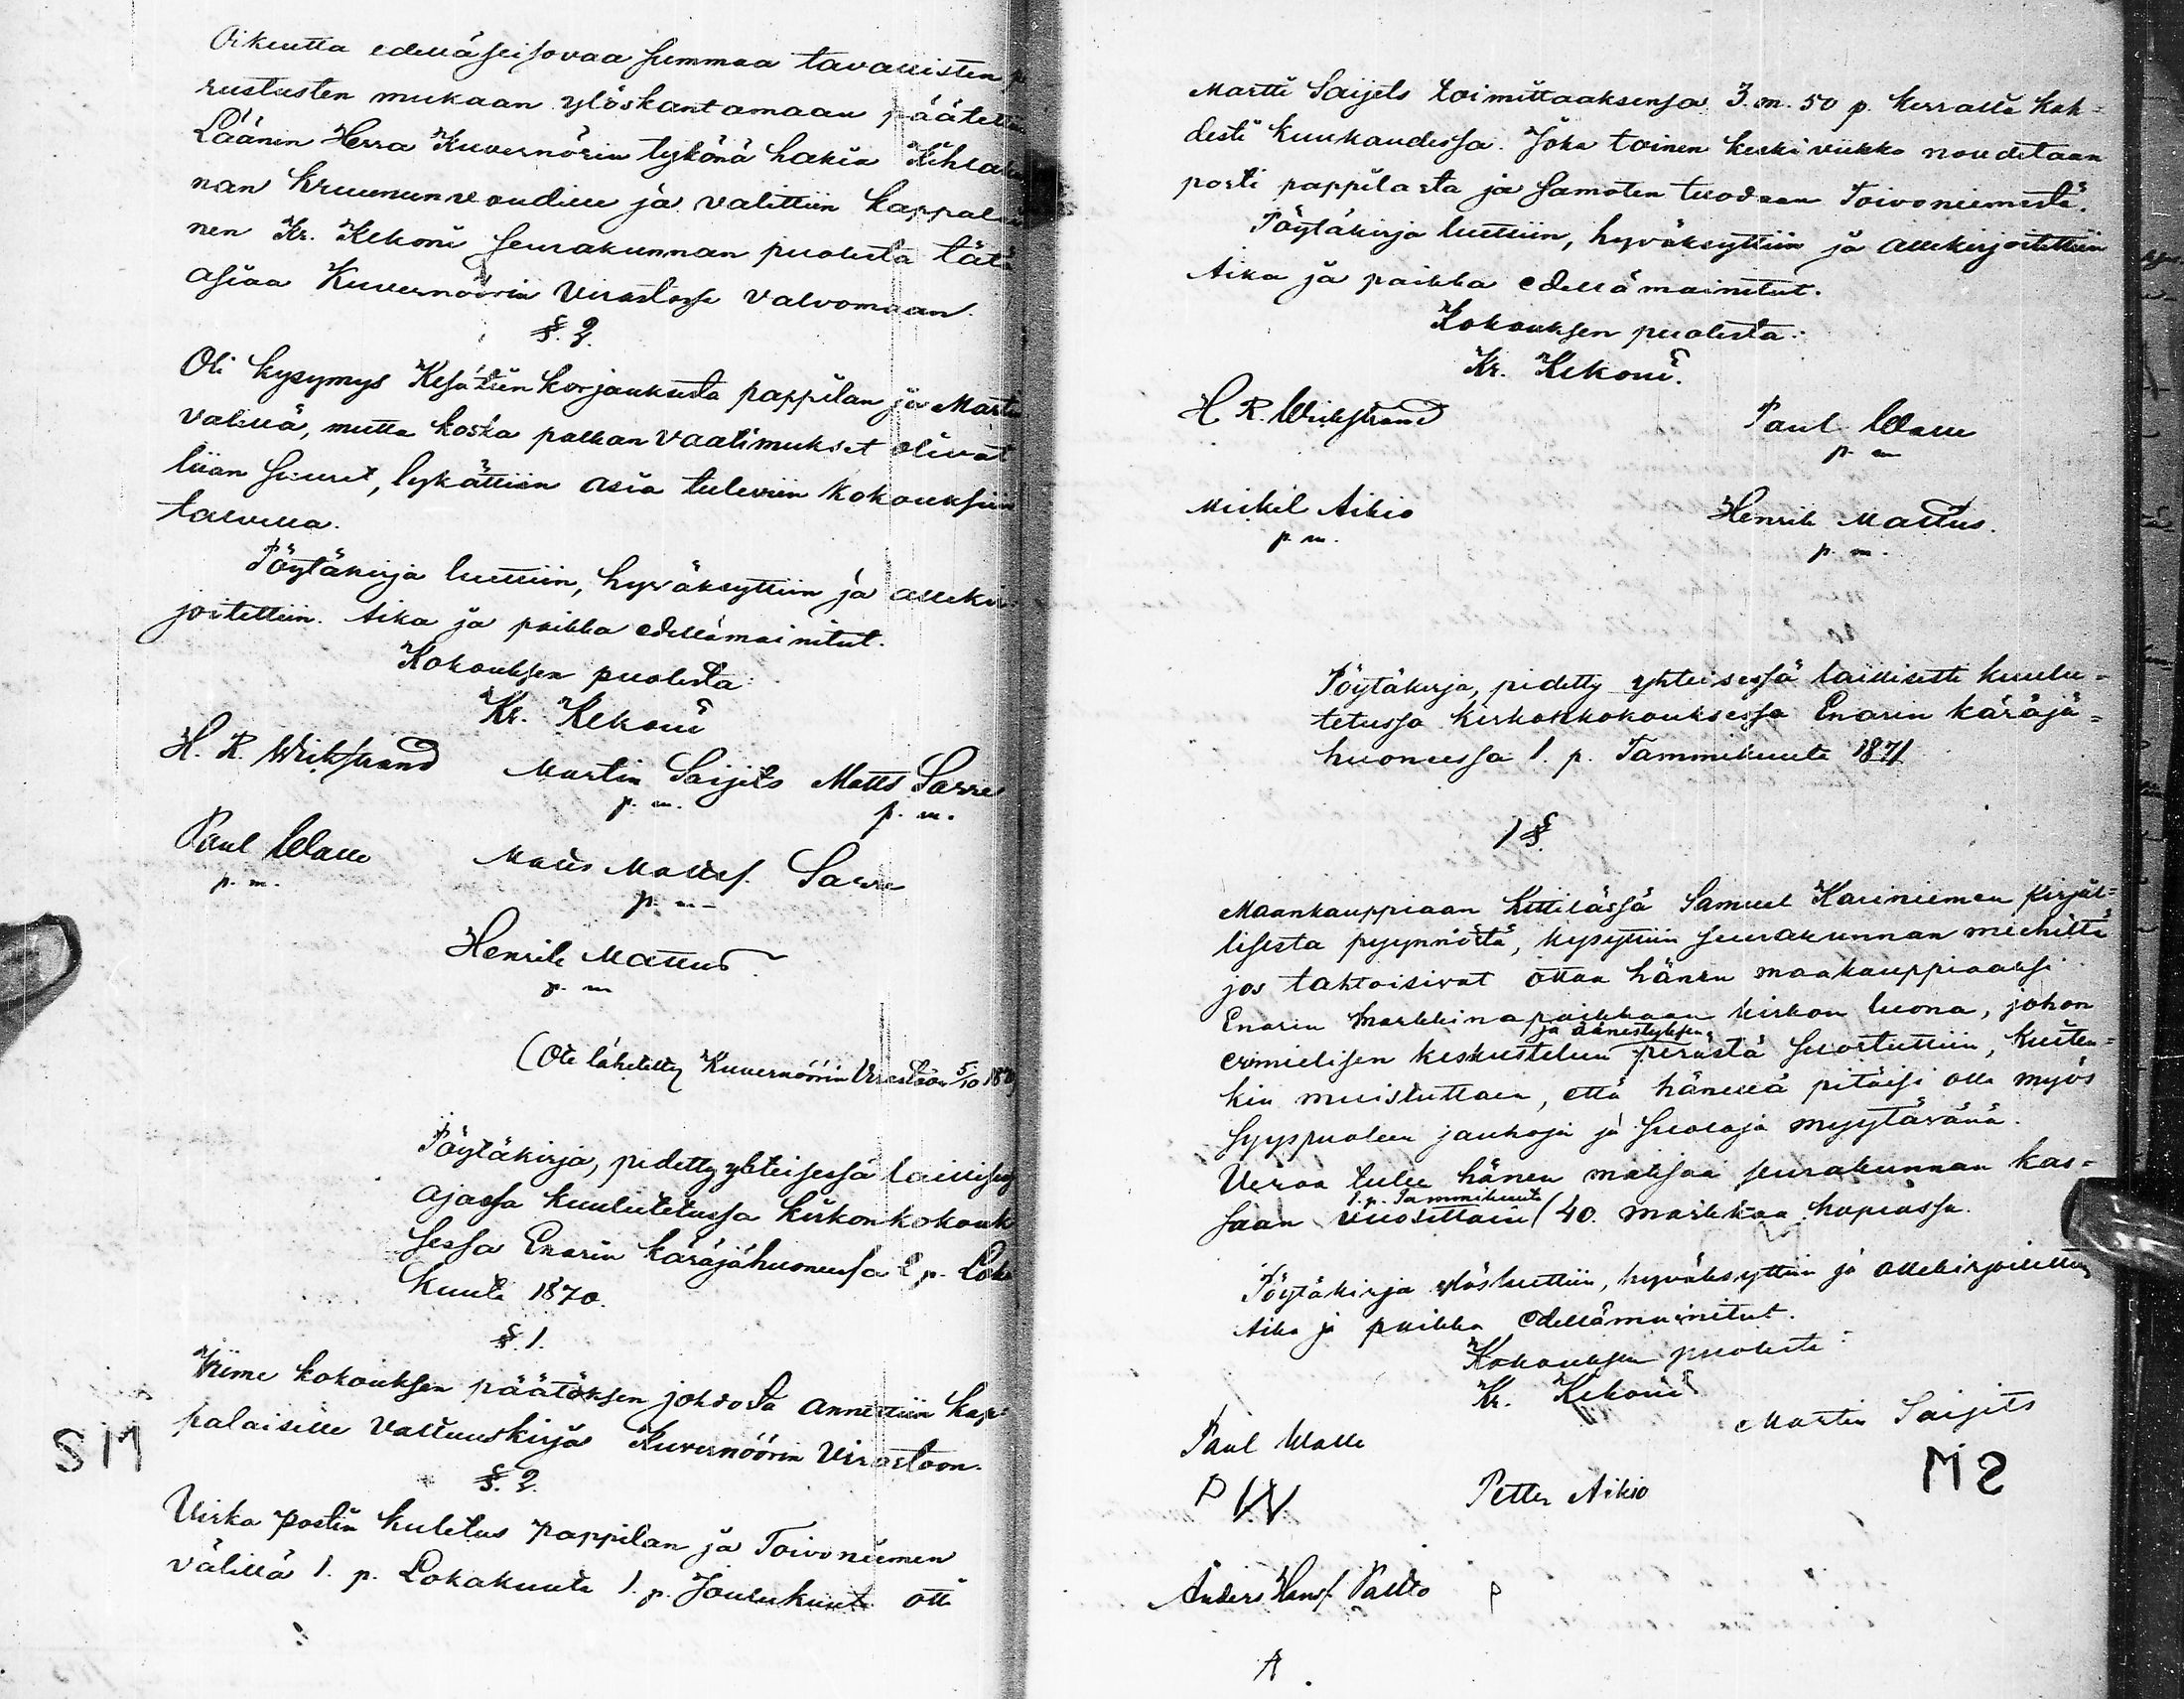 Oikeutta edelläseisovaa summaa tavallisten p
rustusten mukaan ylöskantamaan päätettiin
Läänin Herra Kuvernörin tykönä hakia Kihlakun
nan kruununvoudille ja valittiin kappalai
nen Kr. Kekoni seurakunnan puolesta tätä
asiaa Kuvernöörin Virastossa valvomaan.
§. 2.
Oli kysymys Kesätien korjauksesta pappilan ja Martin
välillä, mutta koska palkan vaatimukset olivat
liian suuret, lykättiin asia tuleviin kokouksiin
talvella.
Pöytäkirja luettiin, hyväksyttiin ja allekir-
joitettiin. Aika ja paikka edellämainitut.
Kokouksen puolesta
Kr. Kekoni
H. R. Wickstrand Martin Saijets Matts Sarre
p. m. p. m.
Paul Walle Matts Mattss. Sarre
p. m. p. m.
Henrik Mattus
p. m
(Ote lähetetty Kuvernöörin Virastoon 5/10 1870)
Pöytäkirja, pidetty yhteisessä laillisesti
ajassa kuulutetussa kirkonkokouk
sessa Enarin käräjähuoneessa 2 p. Loka
kuuta 1870.
§. 1.
Viime kokouksen päätöksen johdosta annettiin kap-
palaiselle valtuuskirja Kuvernöörin Virastoon.
§. 2.
Virka postin kuletus pappilan ja Toivoniemen
välillä 1. p. Lokakuuta 1. p. Joulukuuta otti
SM
Martti Saijets toimittaaksensa 3 m. 50 p. kerralta kah-
desti kuukaudessa. Joka toinen keskiviikko noudetaan
posti pappilasta ja samoten tuodaan Toivoniemestä.
Pöytäkirja luettiin, hyväksyttiin ja allekirjoitettiin
Aika ja paikka edellämainitut.
Kokouksen puolesta:
Kr. Kekoni.
H R. Wickstrand Paul Walle
p. m
Mickel Aikio Henrik Mattus.
p. m. p. m.
Pöytäkirja, pidetty yhteisessä laillisesti kuulu-
tetussa kirkonkokouksessa Enarin käräjä-
huoneessa 1. p. Tammikuuta 1871
1 §.
Maankauppiaan Kittilässä Samuel Kariniemen kirjal-
lisesta pyynnöstä, kysyttiin seurakunnan miehiltä
jos tahtoisivat ottaa hänen maakauppiaaksi
Enarin Markkinapaikkaan kirkon luona, johon
ja äänestyksen
erimielisen keskustelun perästä suostuttiin, kuiten-
kin muistuttaen, että hänellä pitäisi olla myös
syyspuoleen jauhoja ja suoloja myytävänä.
Veroa tulee hänen maksaa seurakunnan kas-
1. p. Tammikuuta
saan vuosittain (40. markkaa hopiassa.
Pöytäkirja ylösluettiin, hyväksyttiin ja allekirjoitettiin
Aika ja paikka edellämainitut.
Kokouksen puolesta:
Kr. Kekoni
Martin Saijets
Paul Walle
MS
PW Petter Aikio
Anders Hanss. Paltto P
A.